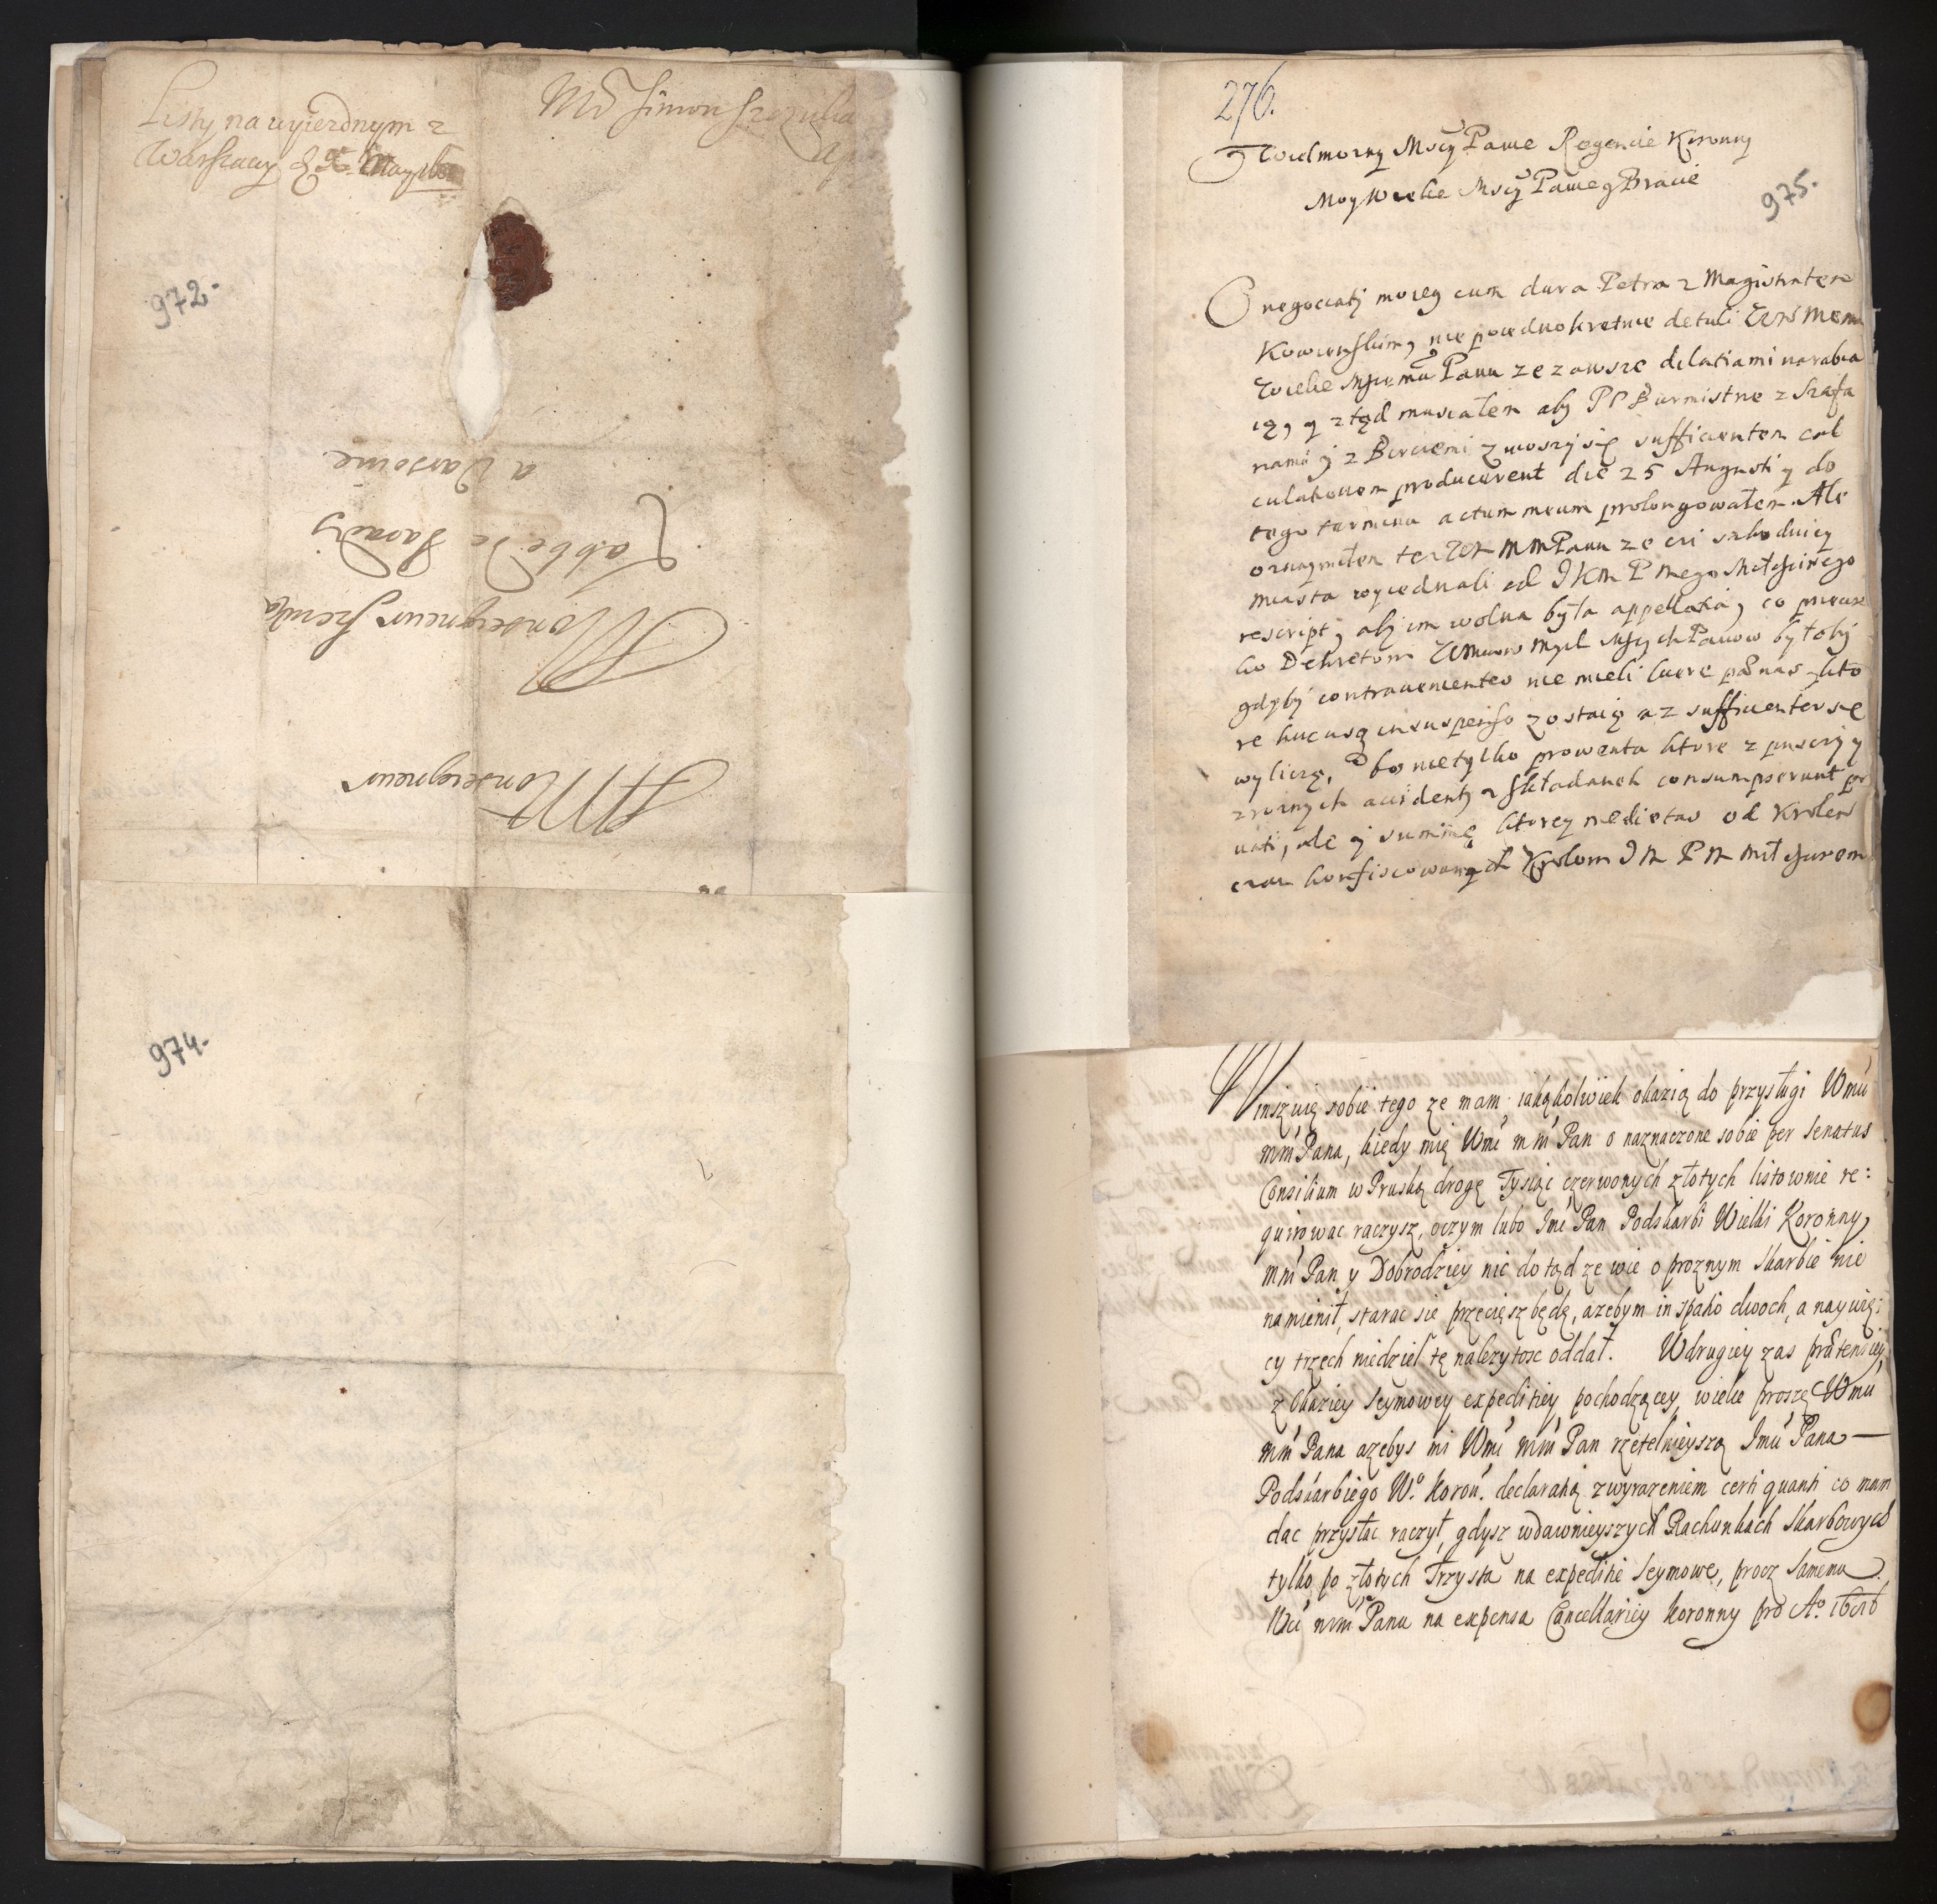 Listy na wyiezdnym z
Warszawy d. May
Md Simon Szczuka
972.
A Monseigneur
Monseigneur Szczuka
l'abbé de Paradis
a Varsovie
974.
276.
Wielmozny Mscy Panie Regencie Koronny
Moy Wielce Mscy Panie y Bracie
975.
O negociatij moiey cum dura Petra z Magistratem
Kowienskim, nie poiednokrotnie detuli
Wielce Msciemu Panu ze zawsze dilatiami narabia
ią, y ztąd musiałem aby PP Burmistrze z Szafa
rzami y z Bircżemi zniosszy się sufficientem cal
culationem producerent die 25 Augusti y do
tego terminu actum meum prolongowałem. Ale
oznaymiłem też MMPanu ze ci szkodnicy
miasta wyiednali od JKM P mego Miłosciwego
rescript, aby im wolna była appellatia, co przeciw
ko Dekretom Mscych Panow byłoby
gdyby contravenientes nie mieli luere pœnas kto
re hucusq in suspenso zostaią az sufficienter się
wyliczą, bo nie tylko prowenta ktore z puszczy y
z roznych accidenty z składanek consumpserunt pri
uati, ale y summę ktorey medietas od Krolew
czan konfiscowanych Krolom J M P M miłosciwem
Winszuię sobie tego ze mam iakążkolwiek okazią do przysługi Wmu
mm Panu, kiedy mię Wmć mm Pan o naznaczone sobie per Senatus
Consilium w Pruską drogę Tysiąc czerwonych złotych listownie re:
quirowac raczysz, oczym lubo Jmć Pan Podskarbi Wielki Koronny,
mm Pan y Dobrodziey nic dotąd ze wie o proznym skarbie nie
namienił, starac się przecięsz będę, azebym in spatio dwoch, a naywię:
cy trzech niedziel tę nalezytosc oddał. W drugiey zas prætensiey,
z okaziey Seymowey expeditiey pochodzącey, wielce proszę Wmu
mm Pana azebys mi Wmć mm Pan rzetelnieyszą Jmu Pana —
Podskarbiego W.º Koron. declaratią z wyrazeniem certi quanti co mam
dac przysłac raczył, gdysz w dawnieyszych Rachunkach Skarbowych
tylko po złotych Trzysta na expeditie Seymowe, procz samemu
Wci mm Panu na expensa Cancellariey Koronny pro Aº. 1676